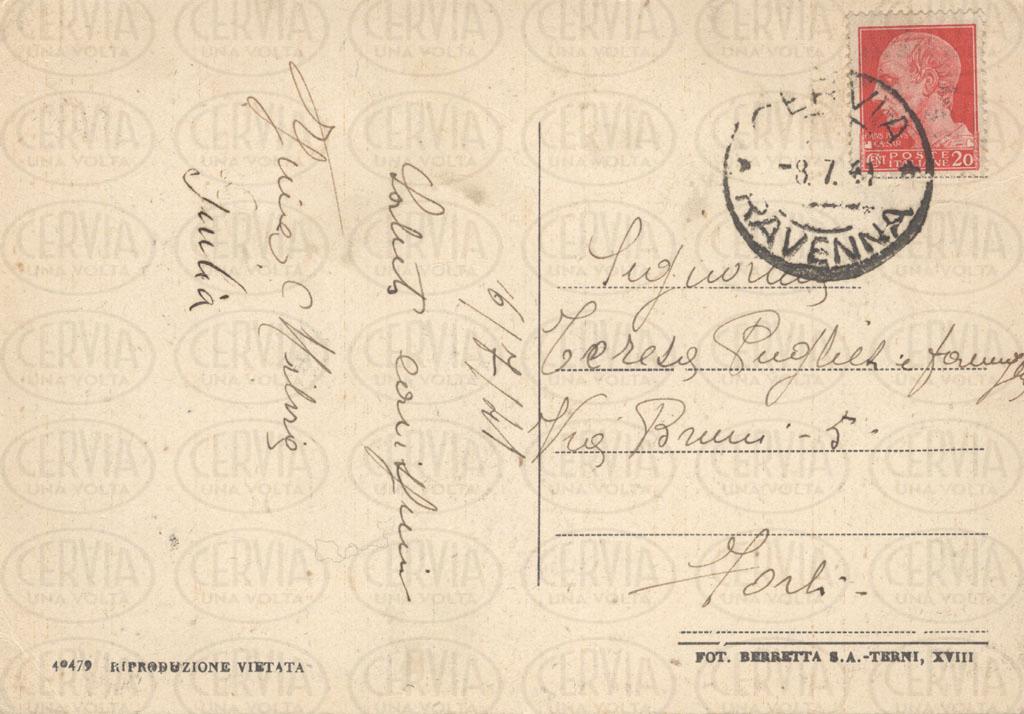 CERVIA
RAVENNA
-8. 7. 41
POSTE
CENT ITALIANE 20
16/7/41
Saluti carissimi
Giulia
Signorina
Teresa Puglisi e famiglia
Via Bruni - 5 -
Forlì -
40479 RIPRODUZIONE VIETATA
FOT. BERRETTA S.A.-TERNI, XVIII
CERVIA
UNA VOLTA